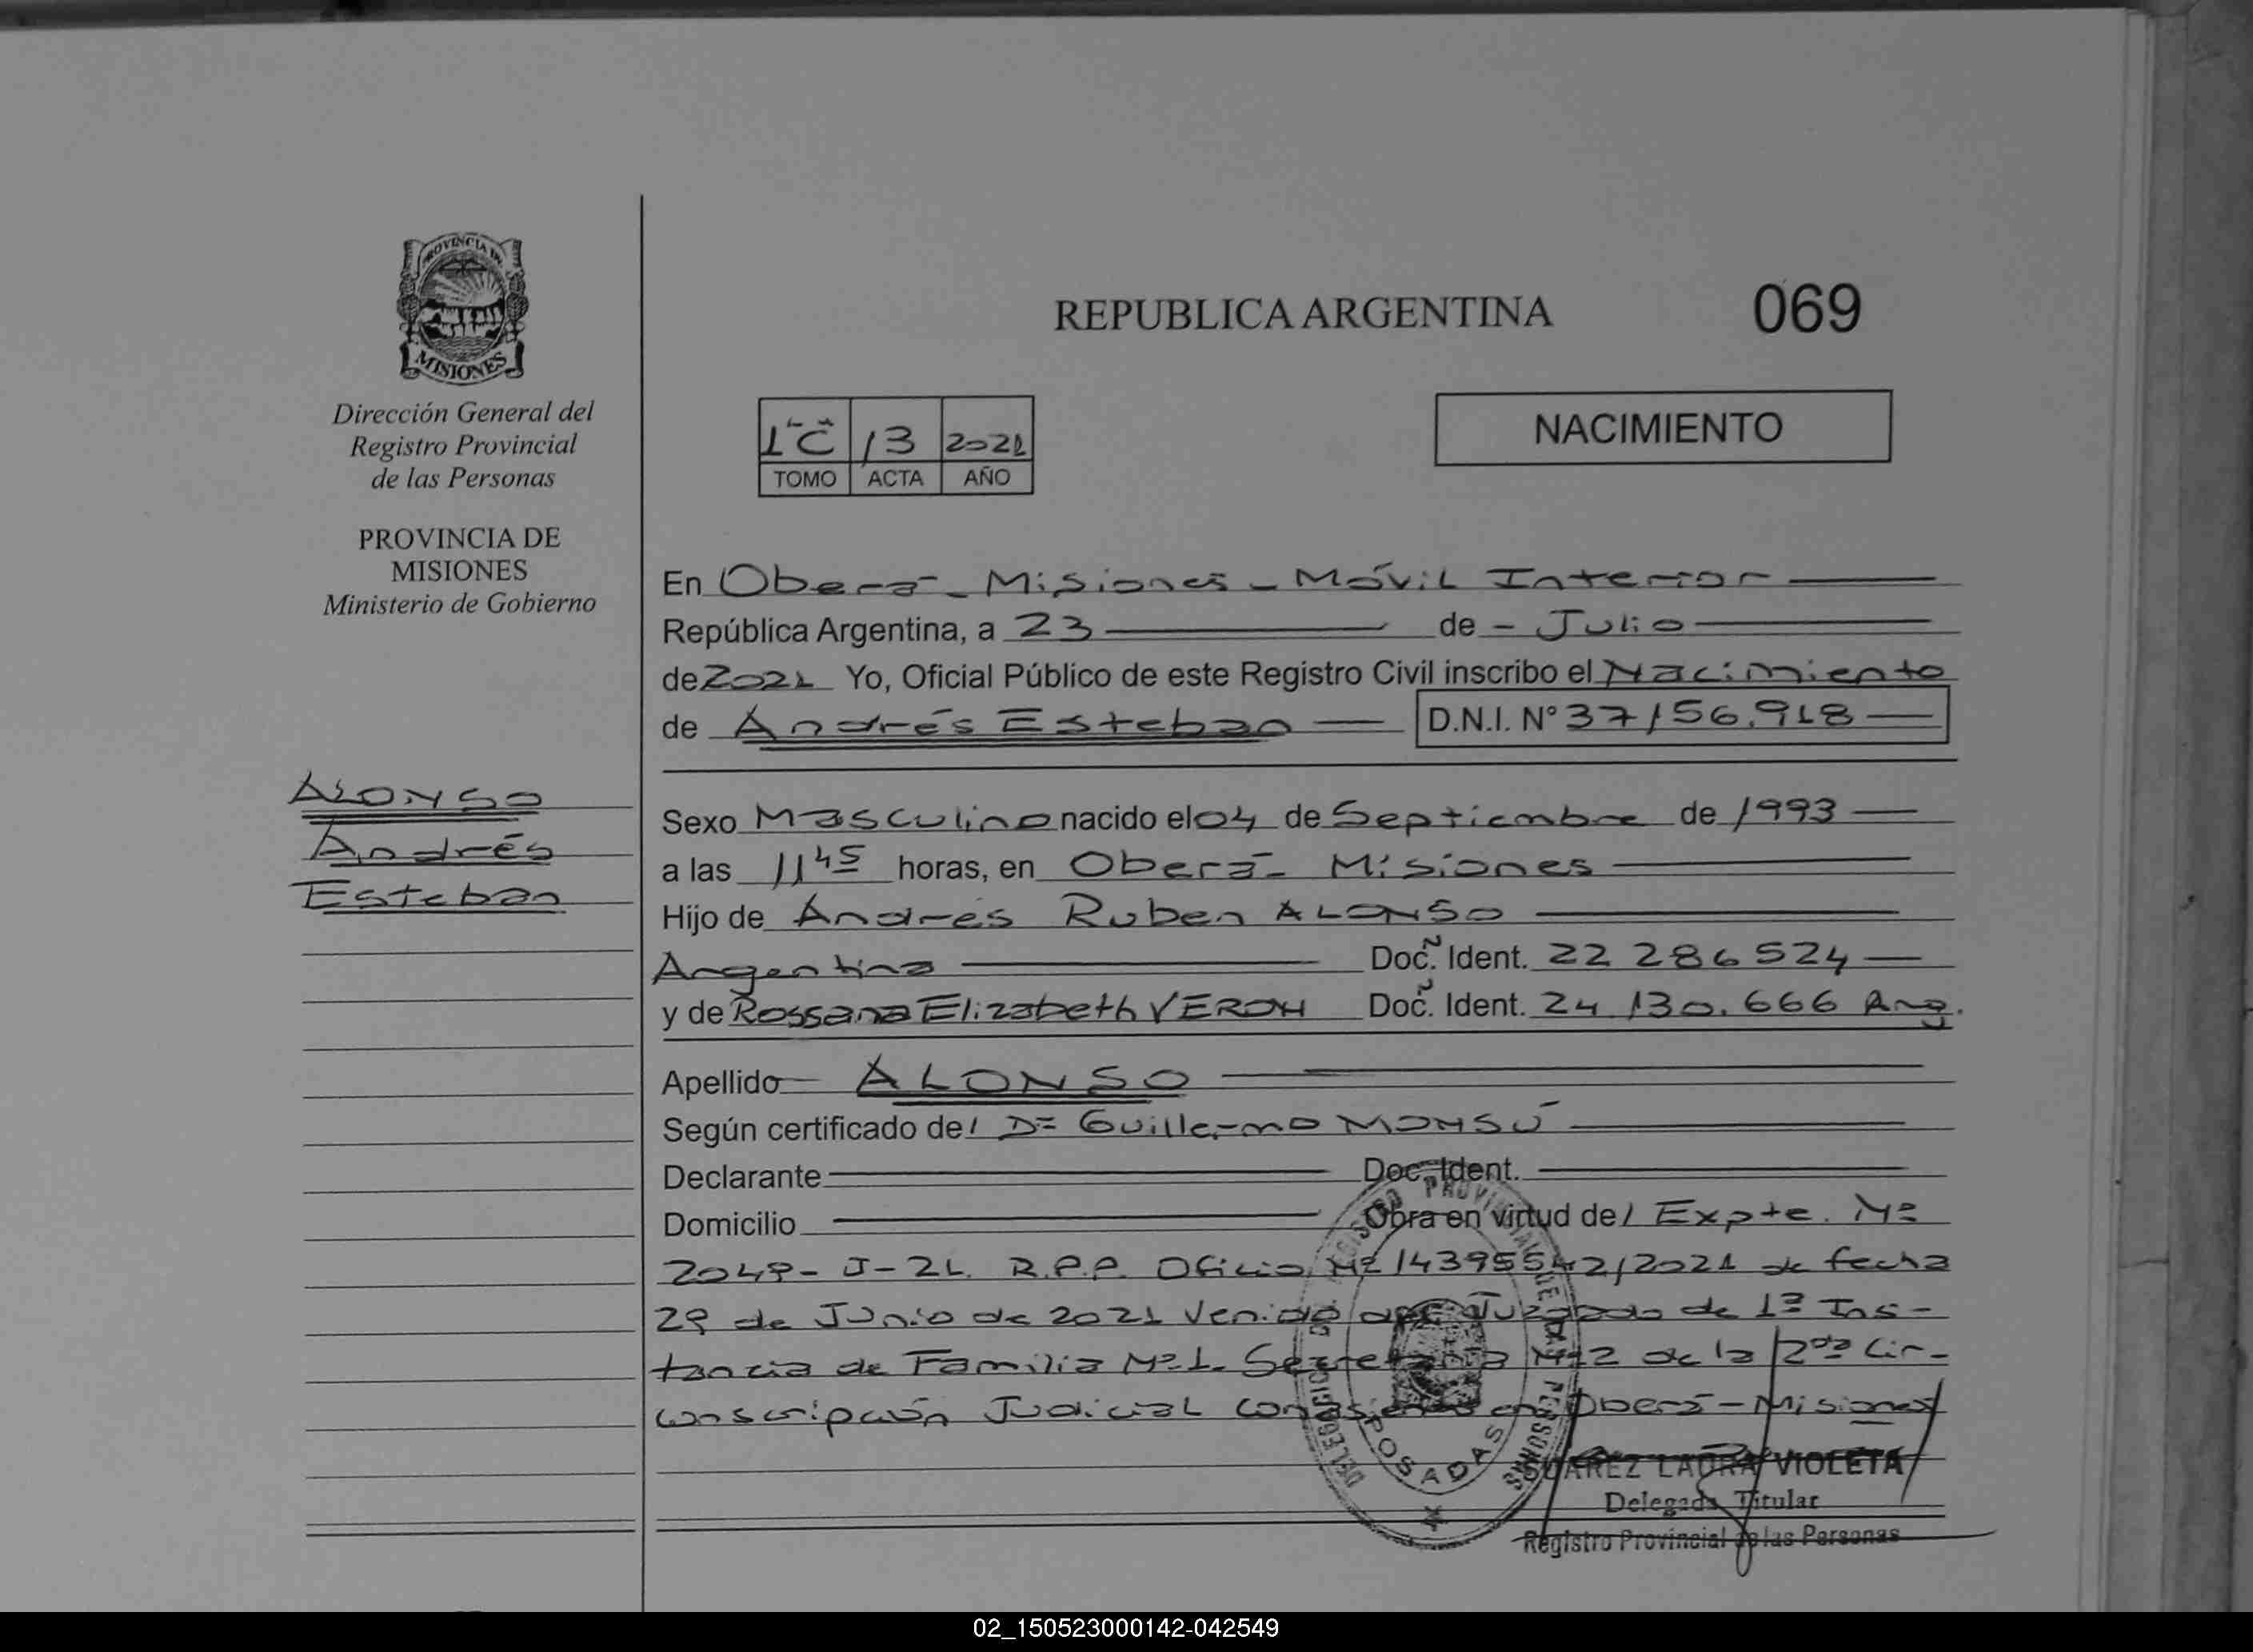 PROVINCIA DE
MISIONES
Dirección General del
Registro Provincial
de las Personas
PROVINCIA DE
MISIONES
Ministerio de Gobierno
ALONSO
Andrés
Esteban
REPUBLICA ARGENTINA 069
NACIMIENTO
13 2021
TOMO ACTA AÑO
En Oberá - Misiones - Móvil Interior
República Argentina, a 23 de - Julio
de 2021 Yo, Oficial Público de este Registro Civil inscribo el Nacimiento
de Andrés Esteban D.N.I. N° 37156.918
Sexo Masculino nacido el 04 de Septiembre de 1993
a las 11 45 horas, en Oberá - Misiones
Hijo de Andrés Ruben ALONSO
Argentina Doc. Ident. 22 286524
y de Rossana Elizabeth VERON Doc. Ident. 24 130.666 Arg.
Apellido ALONSO
Según certificado del Dr Guillermo MONSÚ
Declarante Doc. Ident.
Domicilio Obra en virtud del Expte. Nº
2049- J-21. R.P.P. Oficio Nº 14395542/2021 de fecha
29 de Junio de 2021 Venido del Juzgado de 1ª Ins-
tancia de Familia Nº1. Secretaria Nº2 de la 2da Cir-
conscripción Judicial con asiento en Oberá - Misiones
REGISTRO PROVINCIAL DE LAS PERSONAS
POSADAS
SUAREZ LAURA VIOLETA
Delegada Titular
Registro Provincial de las Personas
02_150523000142-042549